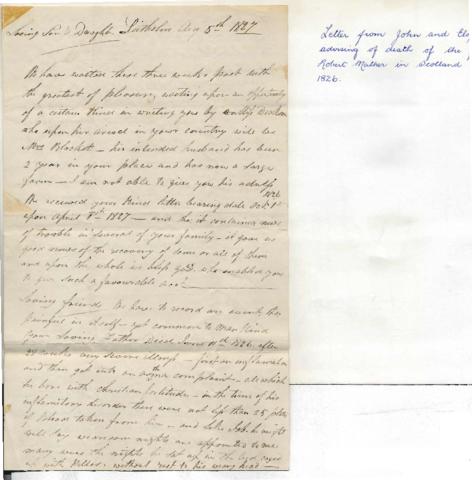 Loving Son & Daughtr Aug 5th 1827
We have waited these three weeks past with
the greatest of pleasure, waiting upon an opportunity
of a certain thing on writing you by
who upon her arrival in your country will be
Mrs Blackett - his intended husband has been
2 year in your place and has now a large
farm - I am not able to give you his
We received your kind letter bearing date Octr 1st 1826
upon April 8th 1827 - and tho it contained news
of trouble in several of your family - it gave us
good news of the recovery of some or all of them
and upon the whole we bless God who enabled you
to give such a favourable
Loving friends We have to record an event tho
painful in itself - yet common to Man kind
your Loving Father Died June 11th 1826 after
very severe illness - first an inflamation
and then got into an asthma complaint - all which
he bore with christian fortitude - in the time of his
inflamitory disorder there were not less than 25
of blood taken from him - and like Job he might
well say wearisome nights are appointed to me
many were the nights he sat up in the bed
up with Pillows, without rest to his weary head -
Letter from John and
advising of death of the
Robert Mather in Scotland
1826.